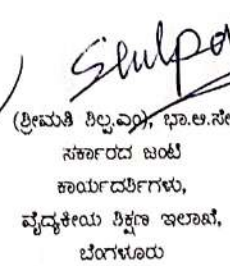 (ಶ್ರೀಮತಿ ಶಿಲ್ಪ.ಎಂ), ಭಾ.ಆ.ಸೇ
ಸರ್ಕಾರದ ಜಂಟಿ
ಕಾರ್ಯದರ್ಶಿಗಳು,
ವೈದ್ಯಕೀಯ ಶಿಕ್ಷಣ ಇಲಾಖೆ,
ಬೆಂಗಳೂರು